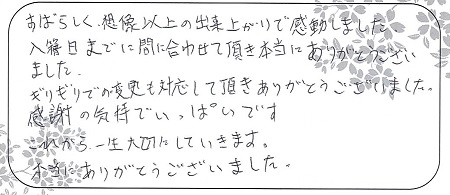 すばらしく、想像以上の出来上がりで感動しました。
入籍日までに間に合わせて頂き本当にありがとうござい
ました。
ギリギリでの変更も対応して頂きありがとうございました。
感謝の気持でいっぱいです
これから一生大切にしていきます。
本当にありがとうございました。